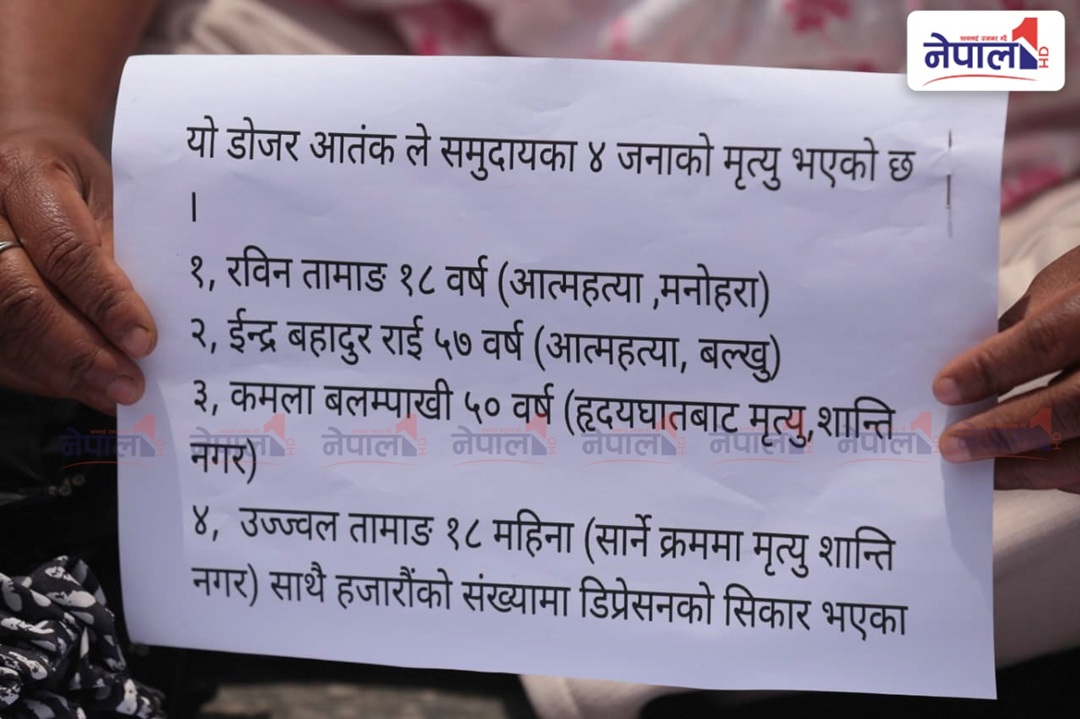 नेपाल 1 HD
यो डोजर आतंक ले समुदायका ४ जनाको मृत्यु भएको छ
।
१, रविन तामाङ १८ वर्ष (आत्महत्या ,मनोहरा)
२, ईन्द्र बहादुर राई ५७ वर्ष (आत्महत्या, बल्खु)
३, कमला बलम्पाखी ५० वर्ष (हृदयघातबाट मृत्यु,शान्ति
नगर)
४, उज्ज्वल तामाङ १८ महिना (सार्ने क्रममा मृत्यु शान्ति
नगर) साथै हजारौंको संख्यामा डिप्रेसनको सिकार भएका